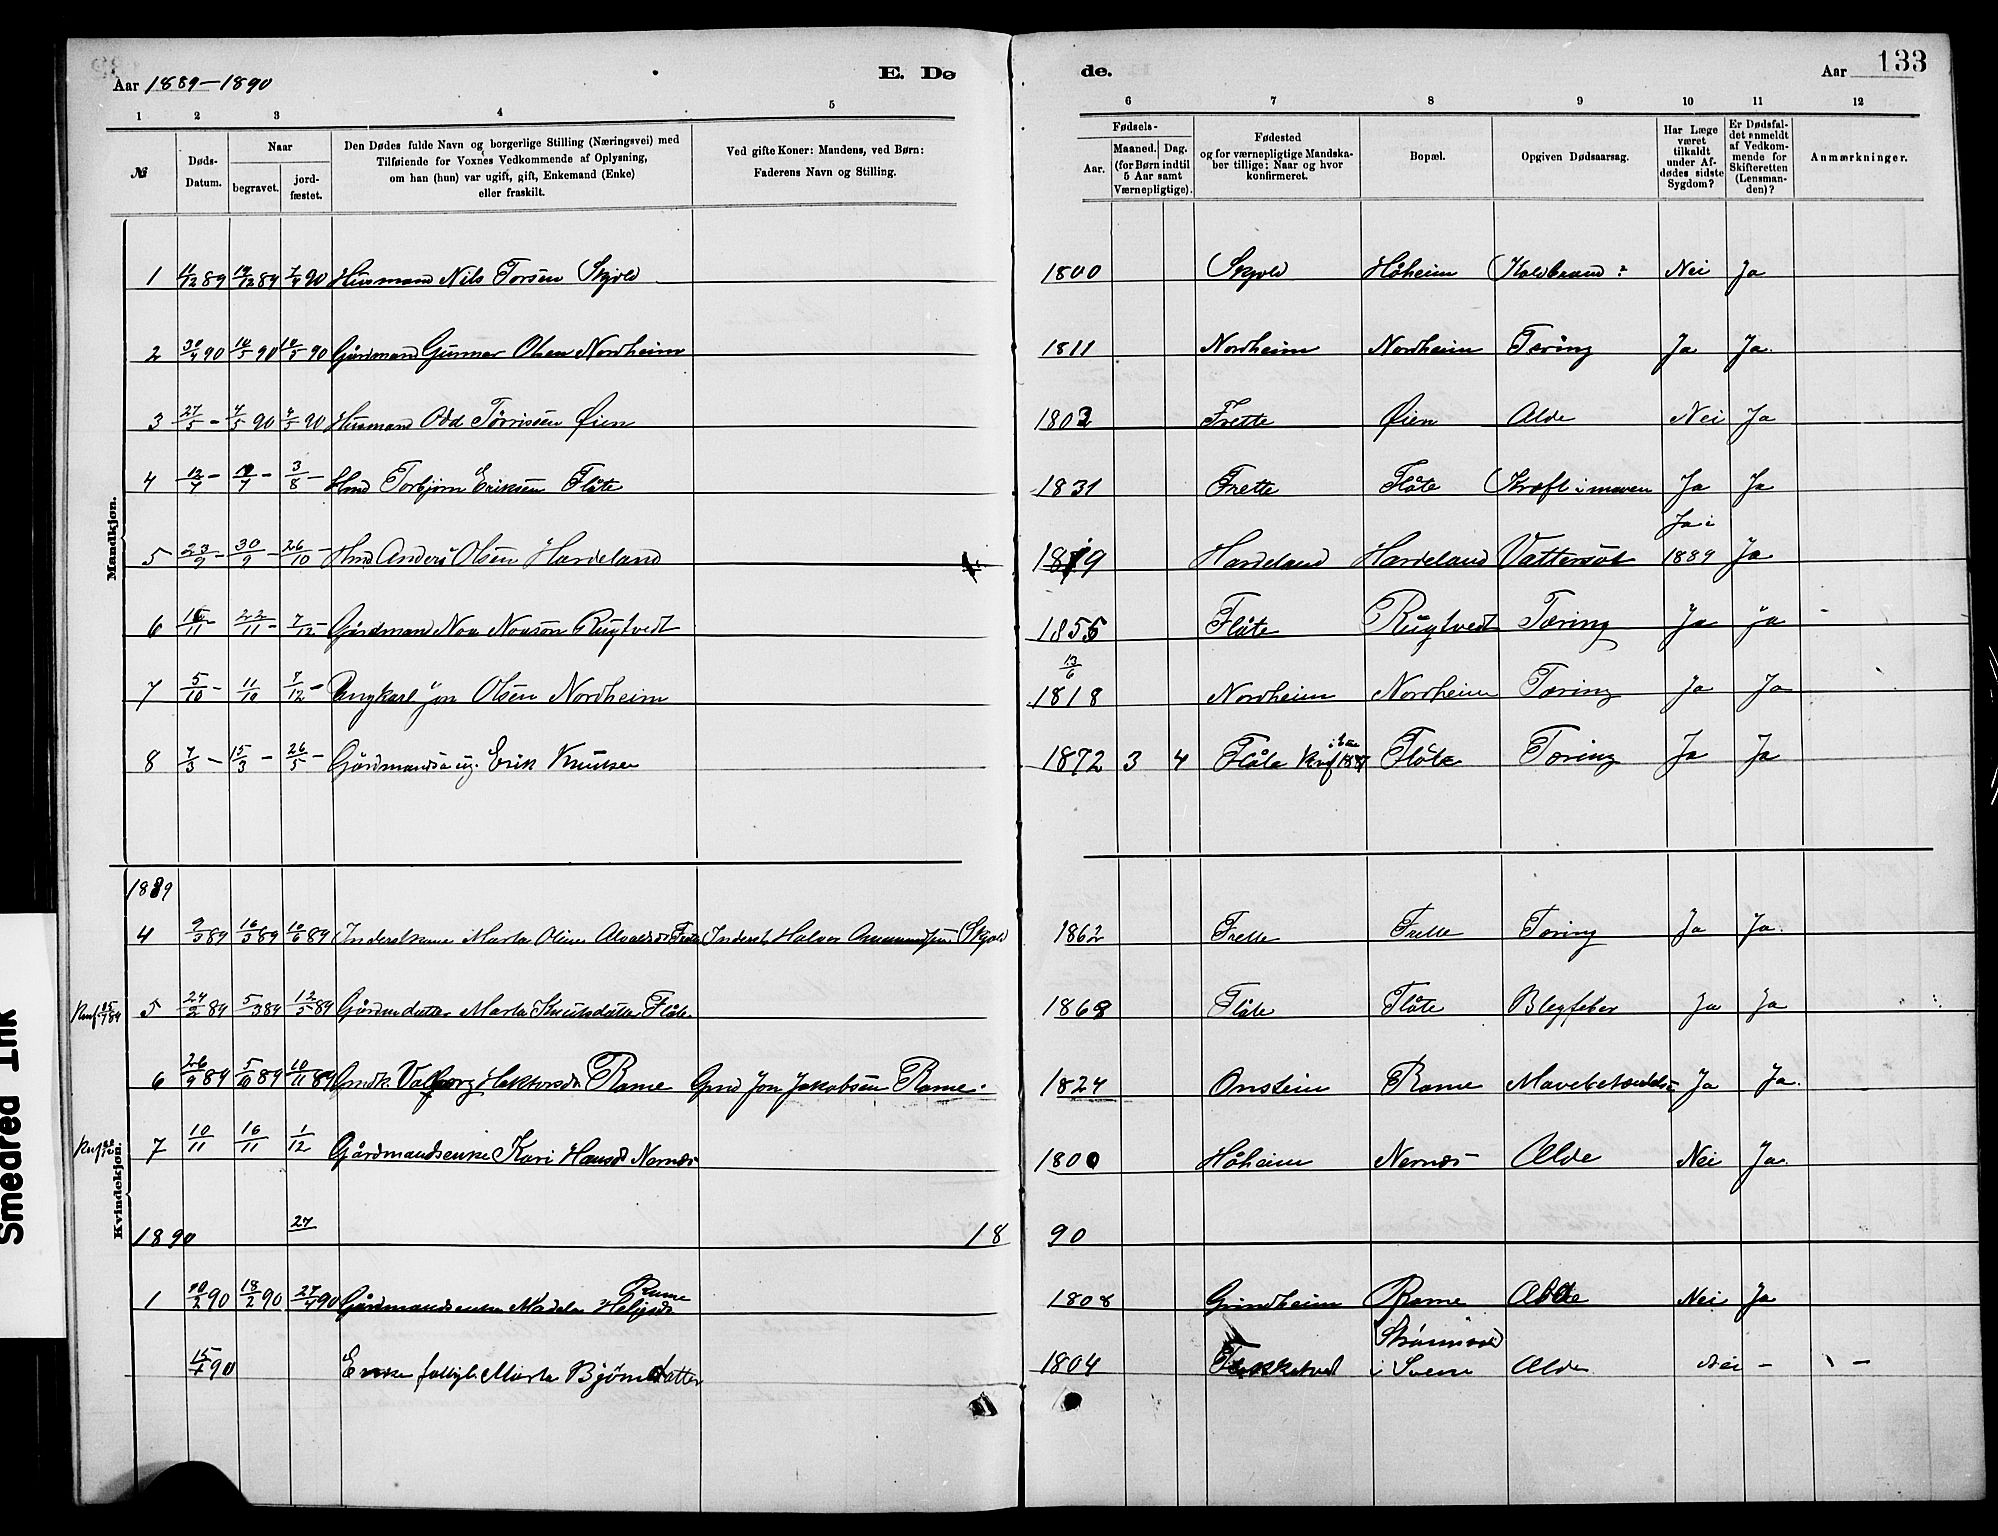 Aar 1889-1890
E. Dø
de.
Aar 133
1 2 3 4 5 6 7 8 9 10 11 12
№
Døds-Datum.
Naar
begravet.
jord-fæstet.
Den Dødes fulde Navn og borgerlige Stilling (Næringsvei) med
Tilføiende for Voxnes Vedkommende af Oplysning,
om han (hun) var ugift, gift, Enkemand (Enke)
eller fraskilt.
Ved gifte Koner: Mandens, ved Børn:
Faderens Navn og Stilling.
Fødsels-
Aar.
Maaned. Dag.
(for Børn indtil
5 Aar samt
Værnepligtige).
Fødested
og for værnepligtige Mandska-
ber tillige: Naar og hvor
konfirmeret.
Bopæl.
Opgiven Dødsaarsag.
Har Læge
været
tilkaldt
under Af-
dødes sidste
Sygdom?
Er Dødsfal-
det anmeldt
af Vedkom-
mende for
Skifteretten
(Lensman-
den)?
Anmærkninger.
Mandkjøn.
1 11/12 89 19/12 89 7/4 90 Husmand Nils Torsen Skjold 1800 Skjold Håheim Koldbrand? Nei Ja
2 30/4 90 10/5 90 10/5 90 Gårdmand Gunnar Olsen Nordheim 1811 Nordheim Nordheim Tæring Ja Ja.
3 27/5 - 4/5 90 4/5 90 Husmand Odd Tørrissen Øien 1803 Frette Øien Alde Nei Ja
4 12/7 - 19/7 - 3/8 - Hmd Torbjørn Eriksen Flåte 1831 Frette Flåte Kræft i maven Ja Ja
5 23/9 - 30/9 - 26/10 - Hmd Anders Olsen Hardeland 1819 Hardeland Hardeland Vattersot Ja i 1889 Ja
6 16/11 - 22/11 - 7/12 - Gårdmand Noa Noason Rugtvedt 1855 Flåte Rugtvedt Tæring Ja Ja
7 5/10 - 11/10 7/12 - Ungkarl Jon Olsen Nordheim 13/6 1818 Nordheim Nordheim Tæring Ja Ja
8 7/3 - 15/3 - 26/5 - Gårdmandsø ug. Erik Knutsen 1872 3 4 Flåte Flåte Tæring Ja Ja
Kvindekjøn.
1889
4 9/3 89 16/3 89 10/6 89 Inderstkone Marta Oline Frette Inderst Halvor Amundsen Skjold 1862 Frette Frette Tæring Ja Ja.
Knf. 25/1 84 5 24/2 89 5/3 89 12/5 89 Gårdmdatter Marta Knutsdatter Flåte 1868 Flåte Flåte Blegfeber Ja Ja
6 26/9 89 5/10 89 10/11 89 Gmdk. Valborg Hektorsd. Rame Gmd Jon Jakobsen Rame. 1824 Onstein Rame Mavebetændelse Ja Ja.
7 10/11 16/11 1/12 Gårdmandsenke Kari Hansd Nernæs 1800 Håheim Nernæs Alde Nei Ja.
1890 27 18 90
1 10/2 90 18/2 90 27/4 90 Gårdmandsenke Madela Helgesd Rame 1808 Grindheim Rame Alde Nei Ja
15/4 90 Enke fattigl. Marta Bjørnsdatter 1804 i Svene Alde Nei - -
Smedred Ink